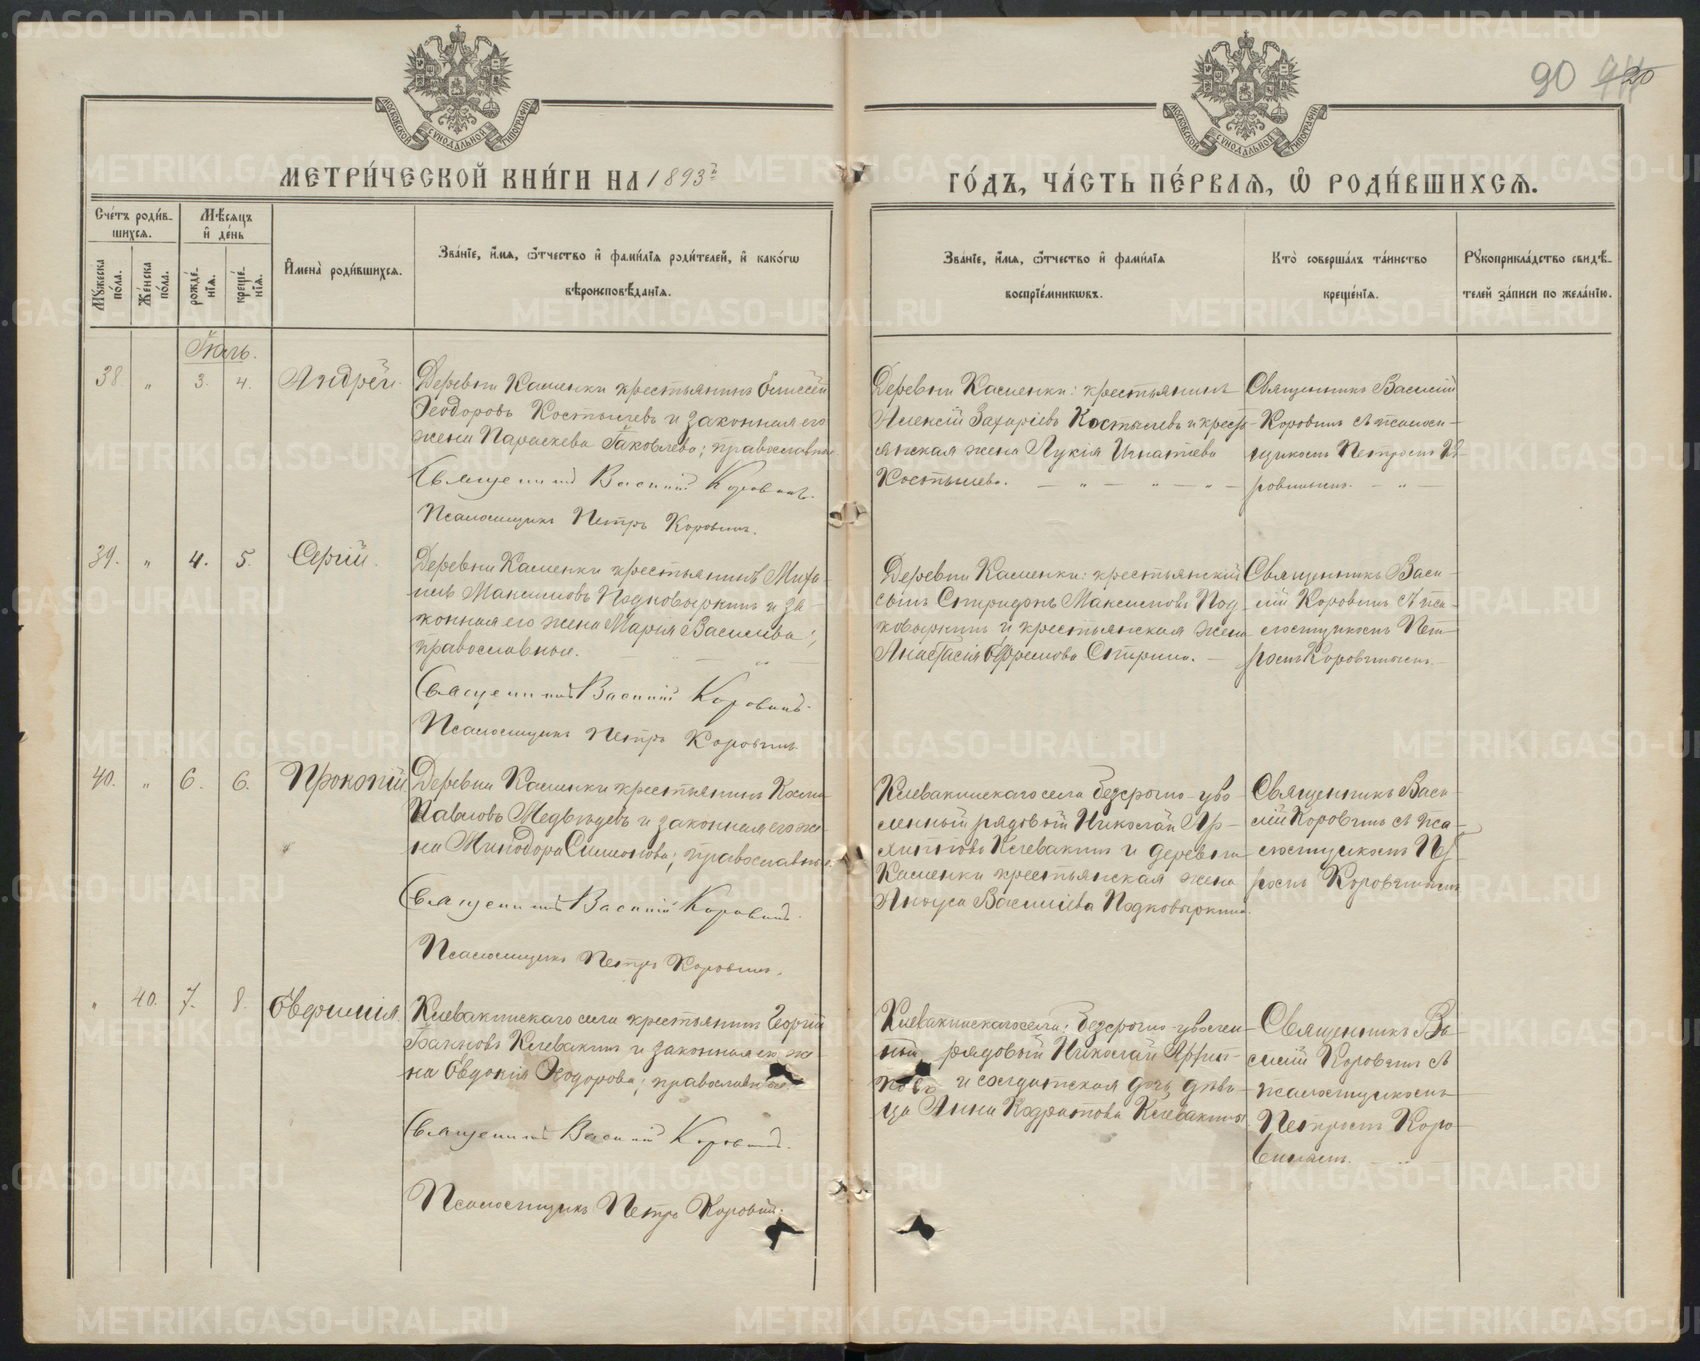 90 20
МОСКОВСКОЙ СѴНОДАЛЬНОЙ ТИПОГРАФИИ
МОСКОВСКОЙ СѴНОДАЛЬНОЙ ТИПОГРАФИИ
МЕТРИ́ЧЕСКОЙ КНИ́ГИ НА 1893 г.
ГО́ДЪ, ЧА́СТЬ ПЕ́РВАѦ, Ѡ҆ РОДИ́ВШИХСѦ.
Сче́тъ роди́в-
шихсѧ.
Мѣ́сѧцъ
и҆ де́нь
Мꙋ́жеска по́ла.
Же́нска по́ла.
рожде́-
нїѧ.
креще́-
нїѧ.
И҆мена̀ роди́вшихсѧ.
Зва́нїе, и҆́мѧ, ѻ҆́тчество и҆ фами́лїѧ роди́телей, и҆ како́гѡ
вѣроисповѣ́данїѧ.
Зва́нїе, и҆́мѧ, ѻ҆́тчество и҆ фами́лїѧ
воспрїе́мникѡвъ.
Кто̀ соверша́лъ та́инство
креще́нїѧ.
Рꙋкоприкла́дство свидѣ́-
телей за́писи по жела́нїю.
Іюль.
38 " 3. 4. Андрей.
Деревни Каменки крестьянинъ Елисей
Ѳеодоровъ Костылевъ и законная его
жена Параскева Іаковлева; православные
Священникъ Василій Коровинъ.
Псаломщикъ Петръ Коровинъ.
Деревни Каменки: крестьянинъ
Алексій Захаріевъ Костылевъ и кресть-
янская жена Лукія Игнатіева
Костылева. — " — " — " —
Священникъ Василій
Коровинъ съ псалом-
щикомъ Петромъ Ко-
ровинымъ. — " —
39. " 4. 5. Сергій.
Деревни Каменки крестьянинъ Миха-
илъ Максимовъ Подковыркинъ и за-
конная его жена Марія Васильева;
православные.
Священникъ Василій Коровинъ.
Псаломщикъ Петръ Коровинъ.
Деревни Каменки: крестьянскій
сынъ Спиридонъ Максимовъ Под-
ковыркинъ и крестьянская жена
Анастасія Ефремова Спирина. —
Священникъ Васи-
лій Коровинъ съ пса-
ломщикомъ Пет-
ромъ Коровинымъ. —
40. " 6. 6. Прокопій
Деревни Каменки крестьянинъ Косма
Павловъ Медвѣдевъ и законная его же-
на Минодора Симеонова; православные.
Священникъ Василій Коровинъ.
Псаломщикъ Петръ Коровинъ.
Клевакинскаго села безсрочно-уво-
ленный рядовый Николай Ар-
хиповъ Клевакинъ и деревни
Каменки крестьянская жена
Васильева Подковыркина.
Священникъ Васи-
лій Коровинъ съ пса-
ломщикомъ Пет-
ромъ Коровинымъ
" 40. 7. 8. Евфимія.
Клевакинскаго села крестьянинъ Георгій
Іоанновъ Клевакинъ и законная его же-
на Евдокія Ѳеодорова; православные.
Священникъ Василій Коровинъ.
Псаломщикъ Петръ Коровинъ.
Клевакинскаго села: безсрочно-уволен-
ный рядовый Николай Архип-
повъ и солдатская дочь дѣви-
ца Анна Кодратова Клевакина
Священникъ Ва-
силій Коровинъ съ
псаломщикомъ
Петромъ Коро-
винымъ. — " —